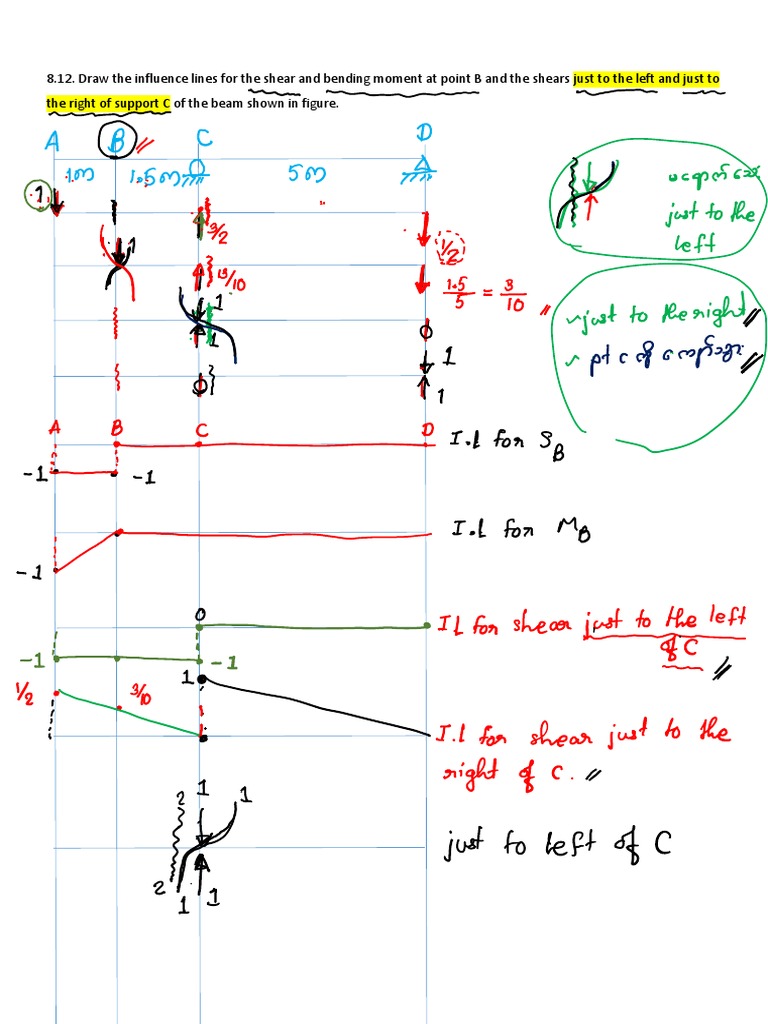 8.12. Draw the influence lines for the shear and bending moment at point B and the shears just to the left and just to
the right of support C of the beam shown in figure.
A B C D
1m 1.5m 5m
1
3/2
1/2
just to the
left
1
13/10
1.5/5 = 3/10
1
1
just to the right
1
1
A B C D
I.L for S_B
-1 -1
I.L for M_B
-1
0
IL for shear just to the left
of C
-1 -1
1
1/2 3/10
I.L for shear just to the
right of C.
2 1 1
just to left of C
2 1 1